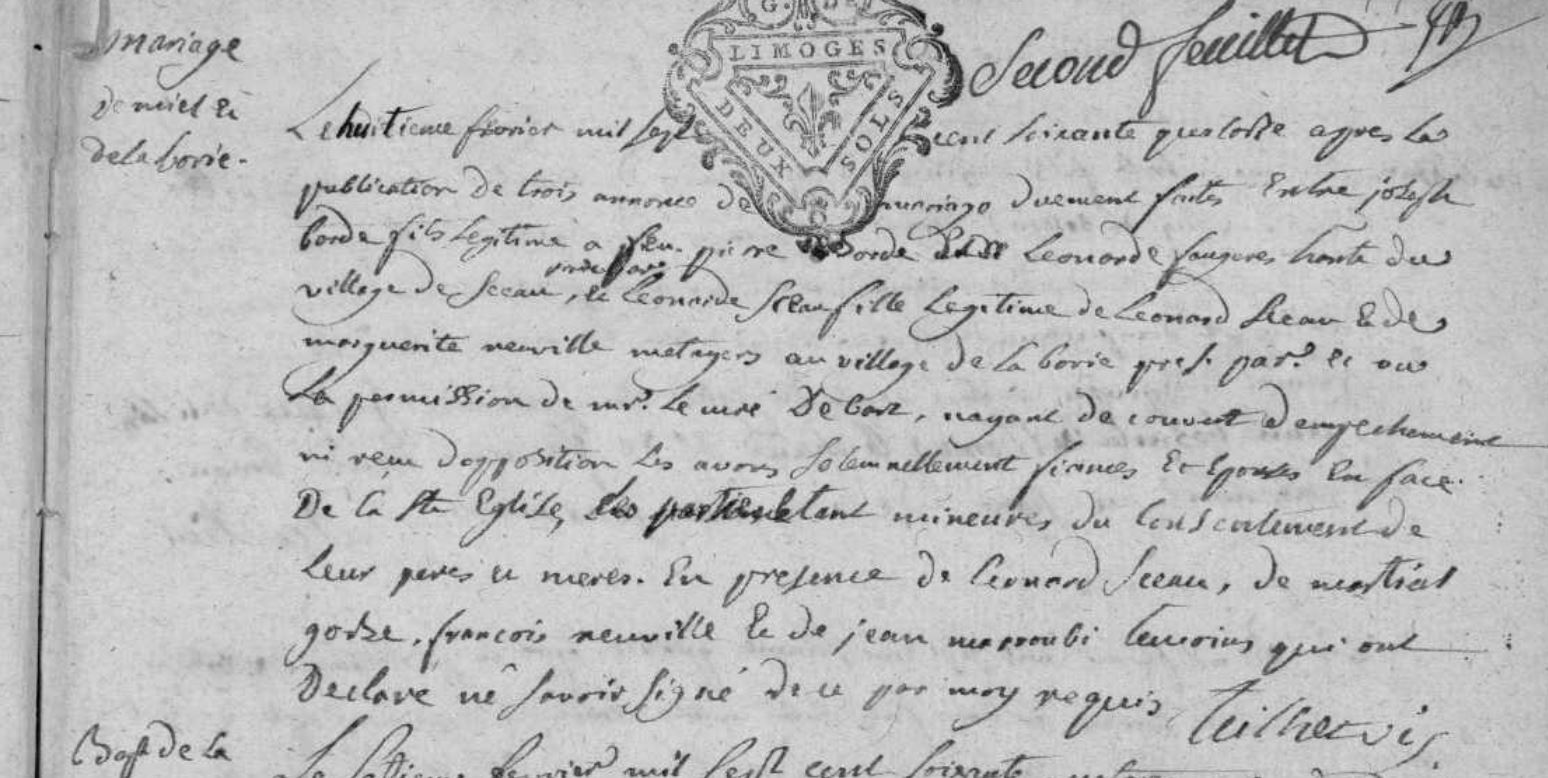 G. DE
LIMOGES
DEUX SOLS
Second feuillet
mariage
de miel et
de la borie.
Le huitieme fevrier mil sept cent soixante quatorze apres la
publication de trois annonce de mariage duement faites Entre joseph
borde fils Legitime a feu pierre Borde Leonarde faugeres hante du
village de Sceau, et Leonarde Sceau fille Legitime de Leonard Sceau et de
marguerite neuville metayers au village de la borie pres. par. et vu
La permission de mr. le curé De , nayant decouvert dempechement
ni reçu dopposition les avons solemnellement fiancés Et Epousés En face
De la Ste Eglise, Les parties etant mineures du consentement de
leur peres et meres. En presence de leonard Sceau, de martial
gorse, francois neuville et de jean marroubi temoins qui ont
Declaré ne savoir signé de ce par moy requis
Bapt de la
Le fevrier mil sept cent soixante